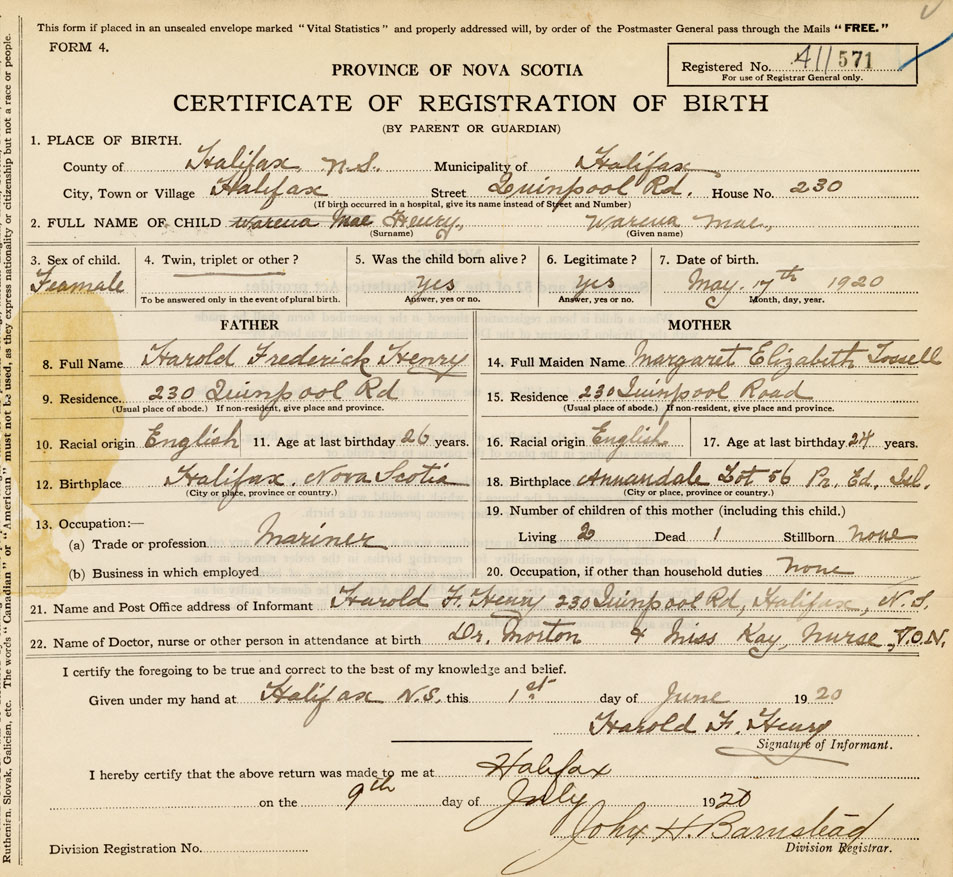 This form if placed in an unsealed envelope marked "Vital Statistics" and properly addressed will, by order of the Postmaster General pass through the Mails "FREE."
FORM 4.
Registered No. 411571
For use of Registrar General only.
PROVINCE OF NOVA SCOTIA
CERTIFICATE OF REGISTRATION OF BIRTH
(BY PARENT OR GUARDIAN)
1. PLACE OF BIRTH.
County of Halifax, N.S. Municipality of Halifax
City, Town or Village Halifax Street Quinpool Rd. House No. 230
(If birth occurred in a hospital, give its name instead of Street and Number)
2. FULL NAME OF CHILD Warena Mae Henry, Warena Mae,
(Surname) (Given name)
3. Sex of child. 4. Twin, triplet or other? 5. Was the child born alive? 6. Legitimate? 7. Date of birth.
Feamale yes yes May. 17th 1920
To be answered only in the event of plural birth. Answer, yes or no. Answer, yes or no. Month, day, year.
FATHER MOTHER
8. Full Name Harold Frederick Henry 14. Full Maiden Name Margaret Elizabeth Tossell
9. Residence. 230 Quinpool Rd 15. Residence 230 Quinpool Road
(Usual place of abode.) If non-resident, give place and province. (Usual place of abode.) If non-resident, give place and province.
10. Racial origin English 11. Age at last birthday 26 years. 16. Racial origin English 17. Age at last birthday 24 years.
12. Birthplace Halifax, Nova Scotia 18. Birthplace Annandale Lot 56 Pr. Ed. Isl.
(City or place, province or country.) (City or place, province or country.)
13. Occupation:— 19. Number of children of this mother (including this child.)
(a) Trade or profession Mariner Living 2 Dead 1 Stillborn none
(b) Business in which employed 20. Occupation, if other than household duties none
21. Name and Post Office address of Informant Harold F. Henry 230 Quinpool Rd, Halifax, N.S.
22. Name of Doctor, nurse or other person in attendance at birth Dr. Morton & Miss Kay, Nurse, V.O.N.
I certify the foregoing to be true and correct to the best of my knowledge and belief.
Given under my hand at Halifax N.S. this 1st day of June 1920
Harold F. Henry
Signature of Informant.
I hereby certify that the above return was made to me at Halifax
on the 9th day of July 1920
John H. Barnstead
Division Registration No. Division Registrar.
Ruthenian, Slovak, Galician, etc. The words "Canadian" or "American" must not be used, as they express nationality or citizenship but not a race or people.